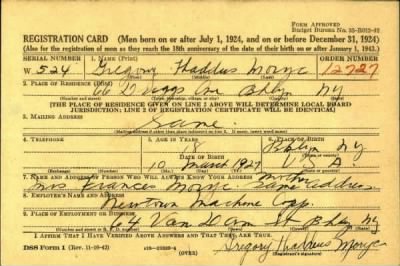 Form Approved
Budget Bureau No. 33-R012-42
REGISTRATION CARD (Men born on or after July 1, 1924, and on or before December 31, 1924)
(Also for the registration of men as they reach the 18th anniversary of the date of their birth on or after January 1, 1943.)
SERIAL NUMBER 1. NAME (Print) ORDER NUMBER
W 524 Gregory Thaddeus 12727
(First) (Middle) (Last)
2. PLACE OF RESIDENCE (Print)
66 Ave Bklyn NY
[THE PLACE OF RESIDENCE GIVEN ON LINE 2 ABOVE WILL DETERMINE LOCAL BOARD
JURISDICTION; LINE 2 OF REGISTRATION CERTIFICATE WILL BE IDENTICAL]
3. MAILING ADDRESS
Same
4. TELEPHONE 5. AGE IN YEARS 6. PLACE OF BIRTH
18 Bklyn NY
DATE OF BIRTH
10 March 1927 U.S.A.
7. NAME AND ADDRESS OF PERSON WHO WILL ALWAYS KNOW YOUR ADDRESS
Mrs Frances mother Same address
8. EMPLOYER'S NAME AND ADDRESS
Newtown Machine Corp.
9. PLACE OF EMPLOYMENT OR BUSINESS
64 Van Dam St Bklyn NY
I AFFIRM THAT I HAVE VERIFIED ABOVE ANSWERS AND THAT THEY ARE TRUE.
DSS Form 1 (Rev. 11-16-42) (OVER) Gregory Thaddeus